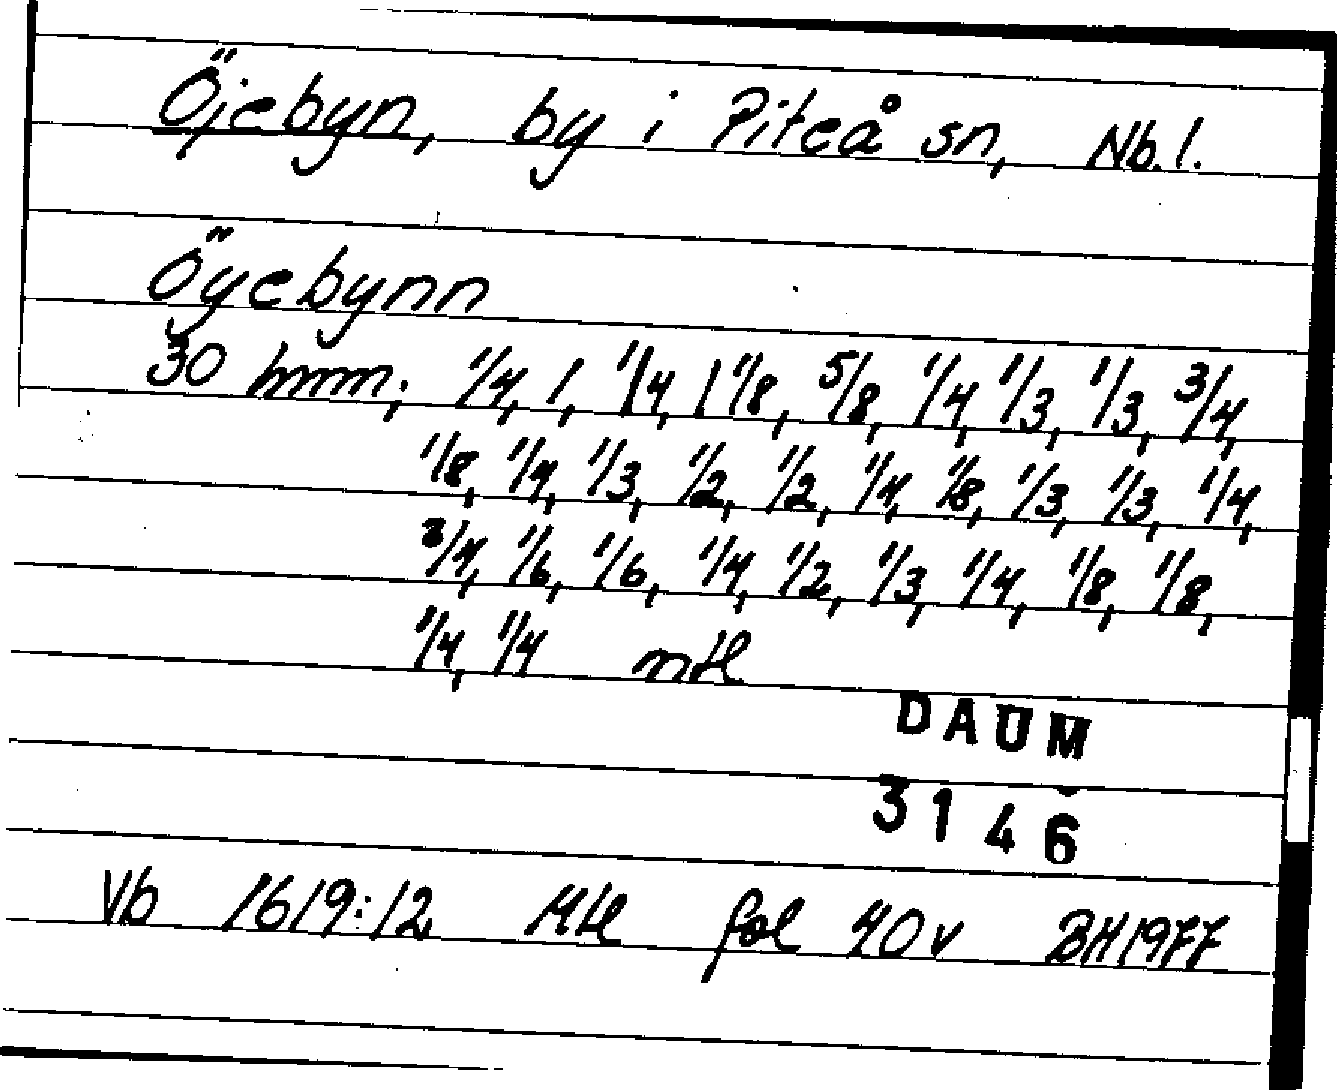 Öjebyn, by i Piteå sn, Nb.l.
Öyebynn
30 hmm; 1/4, 1, 1/4, 1 1/8, 5/8, 1/4, 1/3, 1/3, 3/4,
1/8, 1/4, 1/3, 1/2, 1/2, 1/4, 1/8, 1/3, 1/3, 1/4,
3/4, 1/6, 1/6, 1/4, 1/2, 1/3, 1/4, 1/8, 1/8,
1/4, 1/4 mtl
DAUM
3146
Vb 1619:12 Mtl fol 40v BH1977